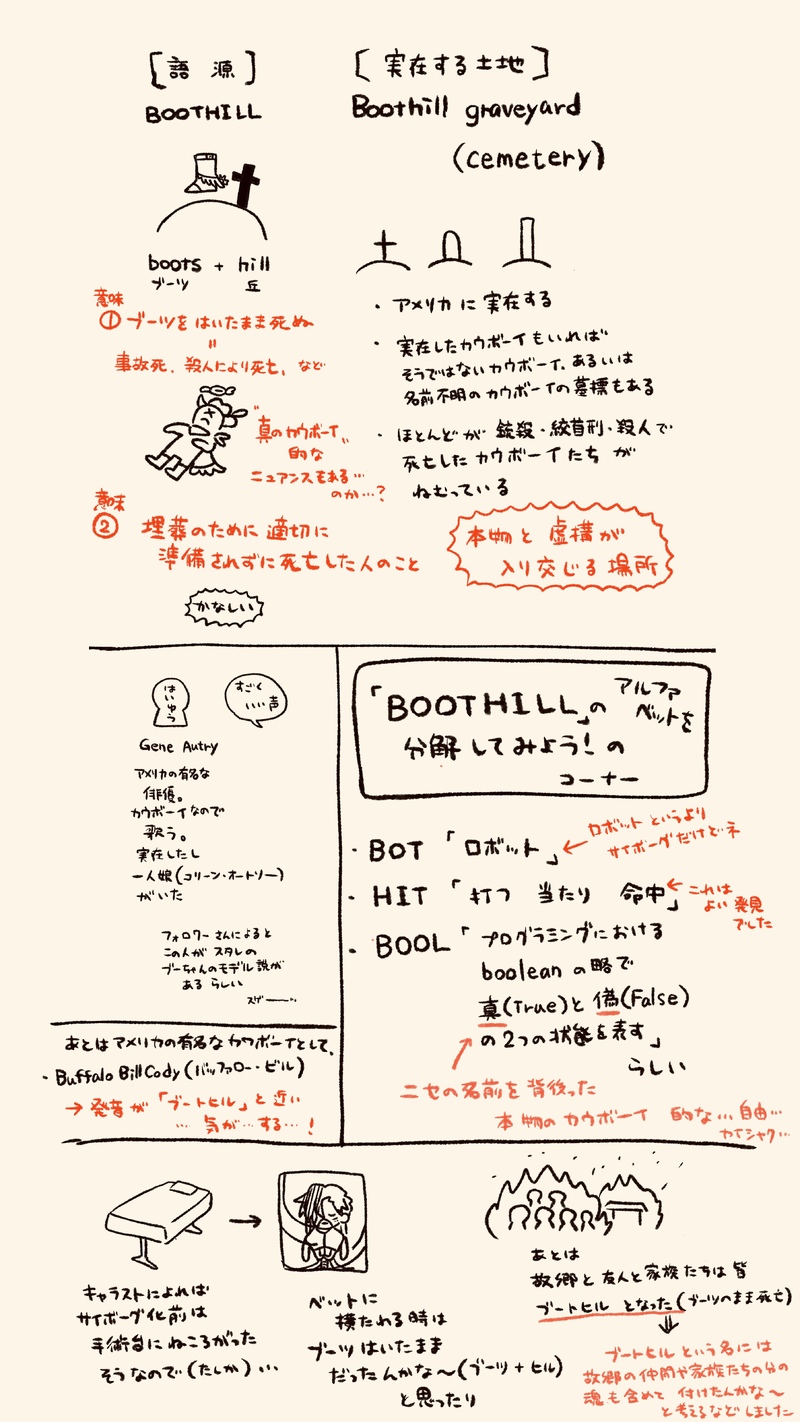 [語源]
BOOTHILL
boots + hill
ブーツ 丘
意味
① ブーツをはいたまま死ぬ
=
事故死、殺人により死亡、など
"真のカウボーイ"
的な
ニュアンスもある…
のか…?
意味
② 埋葬のために適切に
準備されずに死亡した人のこと
かなしい
[実在する土地]
Boothill graveyard
(cemetery)
・アメリカに実在する
・実在したカウボーイもいれば
そうではないカウボーイ、あるいは
名前不明のカウボーイの墓標もある
・ほとんどが銃殺・絞首刑・殺人で
死亡したカウボーイたちが
ねむっている
本物と虚構が
入り交じる場所
はいゆう
すごく
いい声
Gene Autry
アメリカの有名な
俳優。
カウボーイなので
歌う。
実在したし
一人娘(コリーン・オートリー)
がいた
フォロワーさんによると
この人がスタレの
ブーちゃんのモデル説が
あるらしい
スゲー
あとはアメリカの有名なカウボーイとして、
・Buffalo Bill Cody(バッファロー・ビル)
→発音が「ブートヒル」と近い
…気が…する…!
「BOOTHILL」の
アルファ
ベットを
分解してみよう!の
コーナー
・BOT「ロボット」
←ロボットというより
サイボーグだけど…ネ
・HIT「打つ 当たり 命中」
←これは
よい発見
でした
・BOOL「プログラミングにおける
booleanの略で
真(True)と偽(False)
の2つの状態を表す」
らしい
ニセの名前を背後った
本物のカウボーイ 的な…自由…
カイシャク…
キャラストによれば
サイボーグ化前は
手術台にねころがった
そうなので(たしか)…
ベットに
横たわる時は
ブーツはいたまま
だったんかな〜(ブーツ+ヒル)
と思ったり
あとは
故郷と友人と家族たちは皆
ブートヒルとなった(ブーツのまま死亡)
ブートヒルという名には
故郷の仲間や家族たちの分の
魂も含めて付けたんかな〜
と考えるなどしました